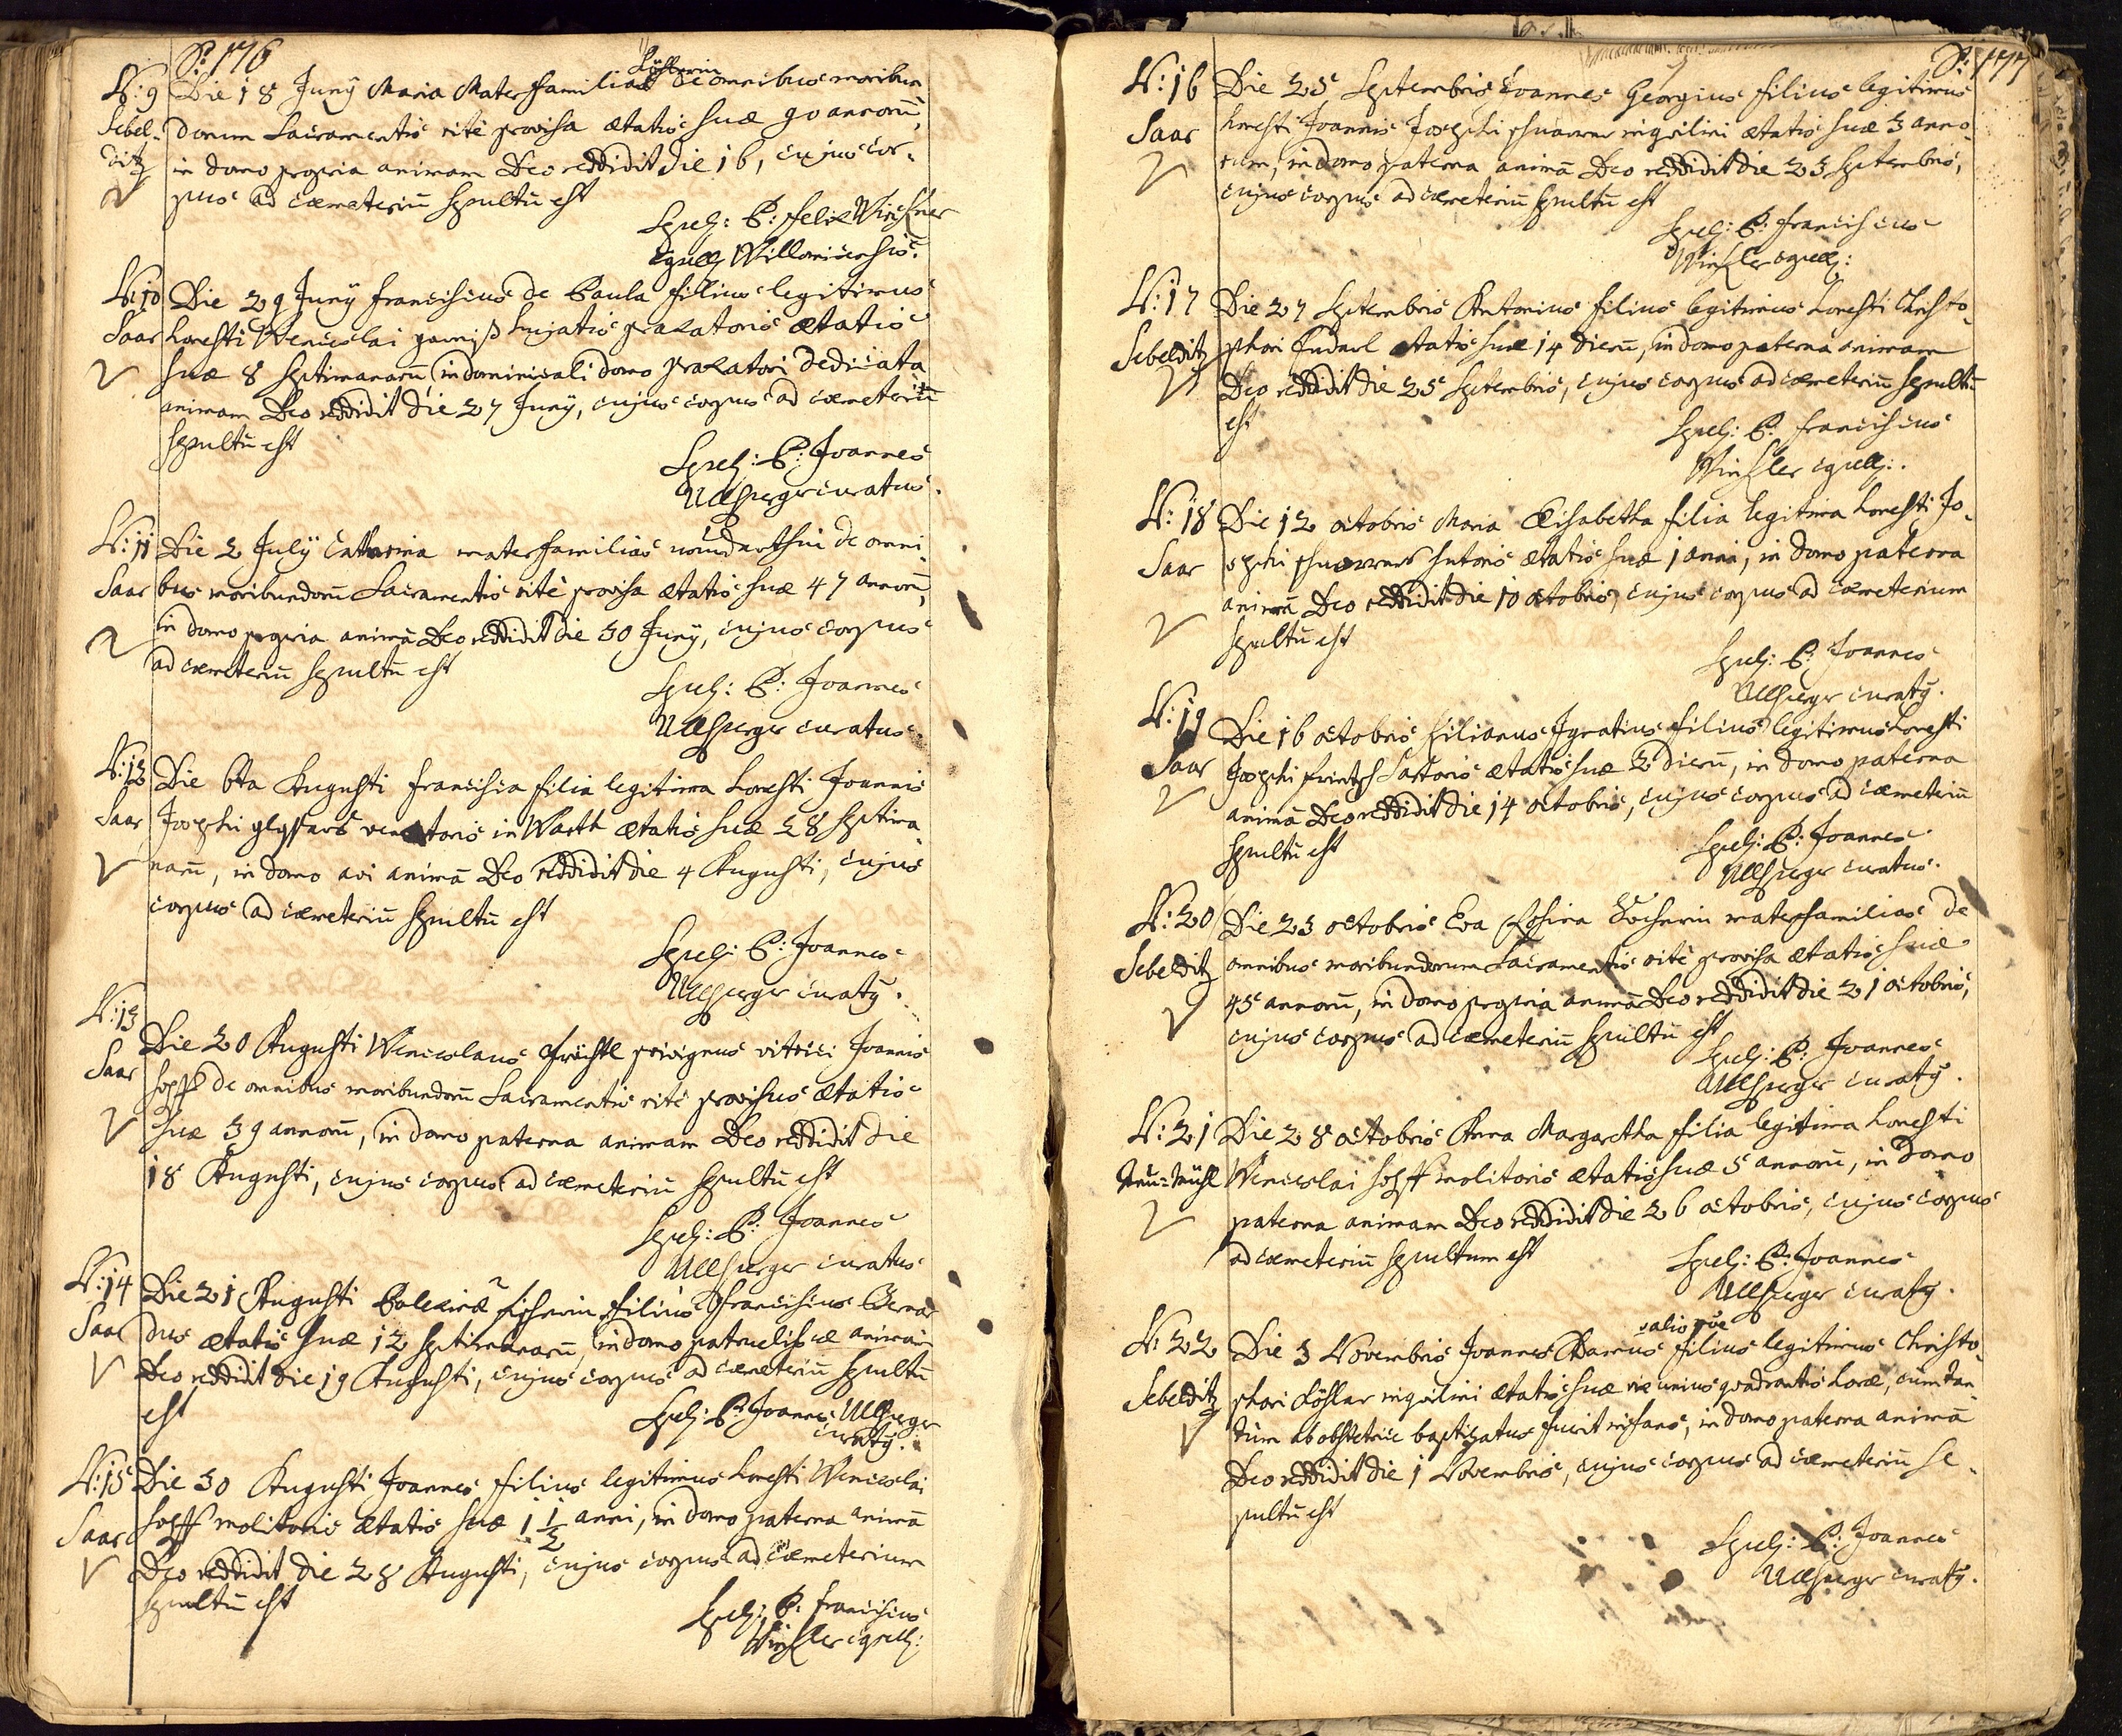 P: 176
N: 9 Die 18 Junÿ Maria Materfamilias de omnibus moribun
Sebel- dorum Sacramentis ritè provisa ætatis suæ 90 annorũ,
ditz in domo propria animam Deo reddidit die 16, cujus cor-
pus ad cæmeteriũ sepultũ est
Sepel: P: Felix
Capell:
N: 10 Die 29 Junÿ Franciscus de Paula filius legitimus
Saar honesti Wenceslai hujatis ætatis
suæ 8 septimanarũ, in dominicali domo dedicata
animam Deo reddidit die 27 Junÿ, cujus corpus ad cæmeteriũ
sepultũ est
Sepel: P: Joannes
Ullsperger curatus.
N: 11 Die 2 Julÿ Catharina materfamilias de omni-
Saar bus moribundorũ Sacramentis ritè provisa ætatis suæ 47 annorũ,
in domo propria animã Deo reddidit die 30 Junÿ, cujus corpus
ad cæmeteriũ sepultũ est
Sepel: P: Joannes
Ullsperger curatus.
N: 12 Die 6ta Augusti Francisca filia legitima honesti Joannis
Saar Josephi venatoris in Warth ætatis suæ 28 septima-
narũ, in domo avi animã Deo reddidit die 4 Augusti, cujus
corpus ad cæmeteriũ sepultũ est
Sepel: P: Joannes
Ullsperger curatÿ.
N: 13
Die 20 Augusti Wenceslaus privignus vitrici Joannis
Saar de omnibus moribundorũ Sacramentis ritè provisus ætatis
suæ 39 annorũ, in domo paterna animam Deo reddidit die
18 Augusti, cujus corpus ad cæmeteriũ sepultũ est
Sepel: P: Joannes
Ullsperger curatus
N: 14 Die 21 Augusti filius Franciscus Bernar
Saar dus ætatis suæ 12 septimanarũ, in domo animam
Deo reddidit die 19 Augusti, cujus corpus ad cæmeteriũ sepultũ
est
Sepel: P: Joannes Ullsperger
curatÿ.
N: 15 Die 30 Augusti Joannes filius legitimus honesti Wenceslai
Saar molitoris ætatis suæ 1 1/2 anni, in domo paterna animã
Deo reddidit die 28 Augusti, cujus corpus ad cæmeterium
sepultũ est
Sepel: P: Franciscus
Winkler capell:
P: 177
N: 16 Die 25 Septembris Joannes Georgius filius legitimus
Saar honesti Joannis Josephi inquilini ætatis suæ 3 anno-
rum, in domo paterna animã Deo reddidit die 23 Septembris,
cujus corpus ad cæmeteriũ sepultũ est
Sepel: P: Franciscus
Winkler capell:
N: 17 Die 27 Septembris Antonius filius legitimus honesti Christo-
Sebelditz phori ætatis suæ 14 dierũ, in domo paterna animam
Deo reddidit die 25 Septembris, cujus corpus ad cæmeteriũ sepultũ
est
Sepel: P: Franciscus
Winkler capell:.
N: 18 Die 12 octobris Maria Elisabetha filia legitima honesti Jo-
Saar sephi sutoris ætatis suæ 1 anni, in domo paterna
animã Deo reddidit die 10 octobris, cujus corpus ad cæmeterium
sepultũ est
Sepel: P: Joannes
Ullsperger curatÿ.
N: 19 Die 16 octobris Kilianus Ignatius filius legitimus honesti
Saar Josephi Sartoris ætatis suæ 2 dierũ, in domo paterna
animã Deo reddidit die 14 octobris, cujus corpus ad cæmeteriũ
sepultũ est
Sepel: P: Joannes
Ullsperger curatus.
N: 20 Die 23 octobris Eva Rosina materfamilias de
Sebelditz omnibus moribundorum Sacramentis ritè provisa ætatis suæ
45 annorũ, in domo propria animã Deo reddidit die 21 octobris,
cujus corpus ad cæmeteriũ sepultũ est
Sepel: P: Joannes
Ullsperger curatÿ.
N: 21 Die 28 octobris Anna Margaretha filia legitima honesti
Neu-Mühl Wenceslai molitoris ætatis suæ 5 annorũ, in domo
paterna animam Deo reddidit die 26 octobris, cujus corpus
ad cæmeteriũ sepultum est
Sepel: P: Joannes
Ullsperger curatÿ.
N: 22 Die 3 Novembris Joannes filius legitimus Christo-
Sebelditz phori inquilini ætatis suæ vix unius quadrantis horæ, cum tan-
tùm ab obstetrice baptizatus fuerit infans, in domo paterna animã
Deo reddidit die 1 Novembris, cujus corpus ad cæmeteriũ se-
pultũ est
Sepel: P: Joannes
Ullsperger curatÿ.